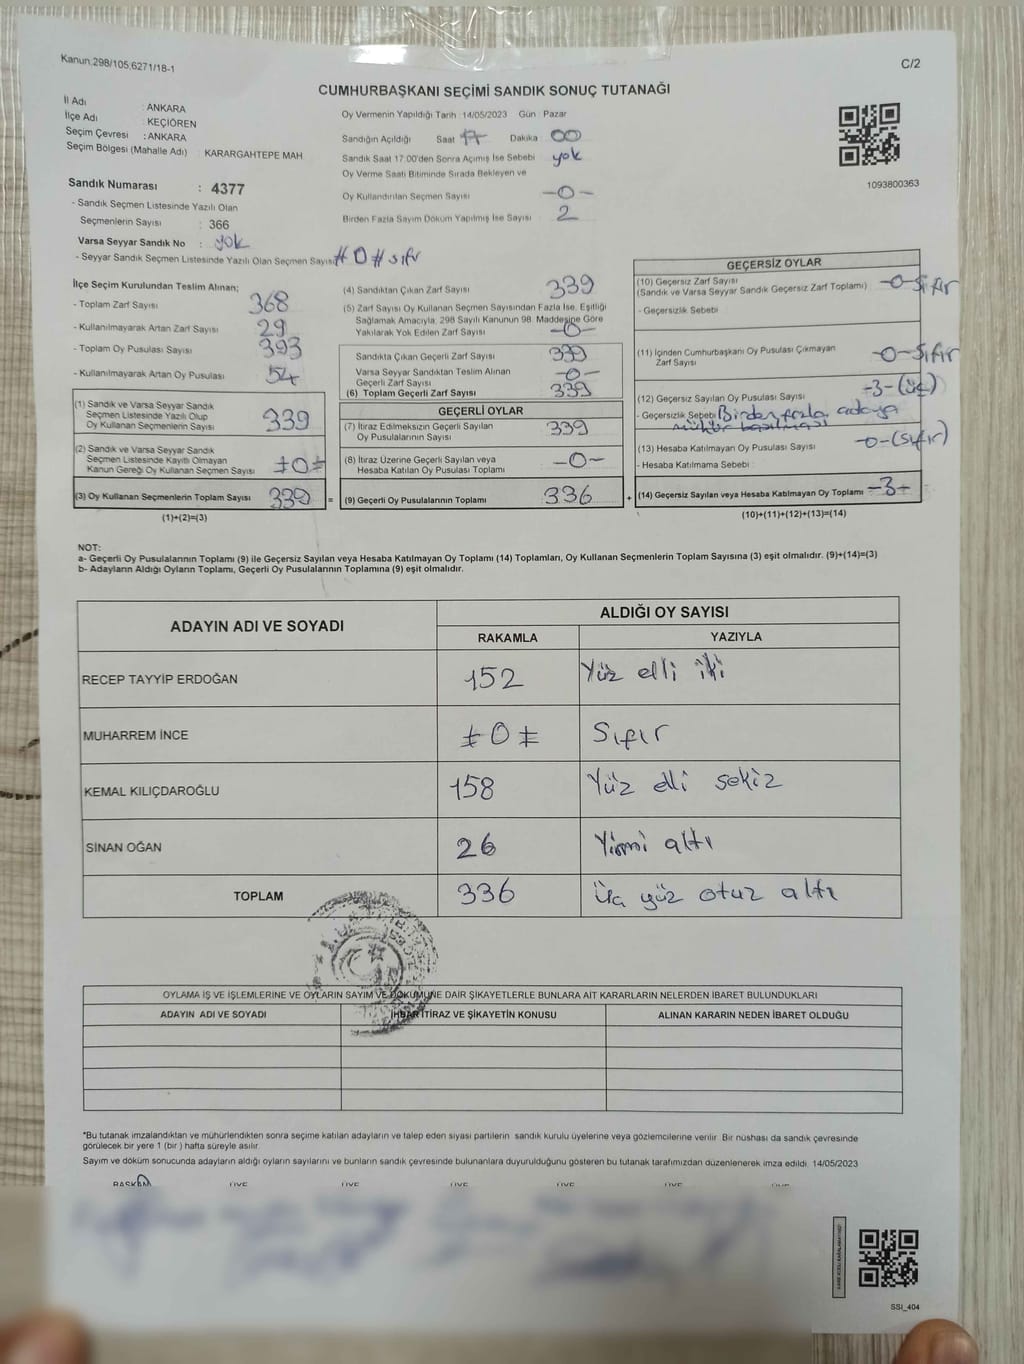 Kanun.298/105,6271/18-1
C/2
CUMHURBAŞKANI SEÇİMİ SANDIK SONUÇ TUTANAĞI
İl Adı : ANKARA
İlçe Adı : KEÇİÖREN
Seçim Çevresi : ANKARA
Seçim Bölgesi (Mahalle Adı) : KARARGAHTEPE MAH
Sandık Numarası : 4377
- Sandık Seçmen Listesinde Yazılı Olan
Seçmenlerin Sayısı : 366
Varsa Seyyar Sandık No : yok
- Seyyar Sandık Seçmen Listesinde Yazılı Olan Seçmen Sayısı # 0 # sıfır
Oy Vermenin Yapıldığı Tarih : 14/05/2023 Gün : Pazar
Sandığın Açıldığı Saat 17 Dakika 00
Sandık Saat 17.00'den Sonra Açımış İse Sebebi yok
Oy Verme Saati Bitiminde Sırada Bekleyen ve
Oy Kullandırılan Seçmen Sayısı -0-
Birden Fazla Sayım Döküm Yapılmış İse Sayısı 2
1093800363
İlçe Seçim Kurulundan Teslim Alınan;
- Toplam Zarf Sayısı 368
- Kullanılmayarak Artan Zarf Sayısı 29
- Toplam Oy Pusulası Sayısı 393
- Kullanılmayarak Artan Oy Pusulası 54
(1) Sandık ve Varsa Seyyar Sandık
Seçmen Listesinde Yazılı Olup
Oy Kullanan Seçmenlerin Sayısı 339
(2) Sandık ve Varsa Seyyar Sandık
Seçmen Listesinde Kayıtlı Olmayan
Kanun Gereği Oy Kullanan Seçmen Sayısı ‡0‡
(3) Oy Kullanan Seçmenlerin Toplam Sayısı 339 =
(1)+(2)=(3)
(4) Sandıktan Çıkan Zarf Sayısı 339
(5) Zarf Sayısı Oy Kullanan Seçmen Sayısından Fazla İse, Eşitliği
Sağlamak Amacıyla, 298 Sayılı Kanunun 98. Maddesine Göre
Yakılarak Yok Edilen Zarf Sayısı -0-
Sandıkta Çıkan Geçerli Zarf Sayısı 339
Varsa Seyyar Sandıktan Teslim Alınan
Geçerli Zarf Sayısı -0-
(6) Toplam Geçerli Zarf Sayısı 339
GEÇERLİ OYLAR
(7) İtiraz Edilmeksizin Geçerli Sayılan
Oy Pusulalarının Sayısı 339
(8) İtiraz Üzerine Geçerli Sayılan veya
Hesaba Katılan Oy Pusulası Toplamı -0-
(9) Geçerli Oy Pusulalarının Toplamı 336 +
GEÇERSİZ OYLAR
(10) Geçersiz Zarf Sayısı -0-sıfır
(Sandık ve Varsa Seyyar Sandık Geçersiz Zarf Toplamı)
- Geçersizlik Sebebi
(11) İçinden Cumhurbaşkanı Oy Pusulası Çıkmayan
Zarf Sayısı -0-sıfır
(12) Geçersiz Sayılan Oy Pusulası Sayısı -3-(üç)
- Geçersizlik Sebebi Birden fazla adaya
mühür basılması
(13) Hesaba Katılmayan Oy Pusulası Sayısı -0-(sıfır)
- Hesaba Katılmama Sebebi :
(14) Geçersiz Sayılan veya Hesaba Katılmayan Oy Toplamı -3-
(10)+(11)+(12)+(13)=(14)
NOT:
a- Geçerli Oy Pusulalarının Toplamı (9) ile Geçersiz Sayılan veya Hesaba Katılmayan Oy Toplamı (14) Toplamları, Oy Kullanan Seçmenlerin Toplam Sayısına (3) eşit olmalıdır. (9)+(14)=(3)
b- Adayların Aldığı Oyların Toplamı, Geçerli Oy Pusulalarının Toplamına (9) eşit olmalıdır.
ADAYIN ADI VE SOYADI ALDIĞI OY SAYISI
RAKAMLA YAZIYLA
RECEP TAYYİP ERDOĞAN 152 Yüz elli iki
MUHARREM İNCE ‡0‡ Sıfır
KEMAL KILIÇDAROĞLU 158 Yüz elli sekiz
SİNAN OĞAN 26 Yirmi altı
TOPLAM 336 Üç yüz otuz altı
OYLAMA İŞ VE İŞLEMLERİNE VE OYLARIN SAYIM VE DÖKÜMÜNE DAİR ŞİKAYETLERLE BUNLARA AİT KARARLARIN NELERDEN İBARET BULUNDUKLARI
ADAYIN ADI VE SOYADI İHBAR İTİRAZ VE ŞİKAYETİN KONUSU ALINAN KARARIN NEDEN İBARET OLDUĞU
*Bu tutanak imzalandıktan ve mühürlendikten sonra seçime katılan adayların ve talep eden siyasi partilerin sandık kurulu üyelerine veya gözlemcilerine verilir. Bir nüshası da sandık çevresinde
görülecek bir yere 1 (bir) hafta süreyle asılır.
Sayım ve döküm sonucunda adayların aldığı oyların sayılarını ve bunların sandık çevresinde bulunanlara duyurulduğunu gösteren bu tutanak tarafımızdan düzenlenerek imza edildi. 14/05/2023
BAŞKAN ÜYE ÜYE ÜYE ÜYE ÜYE ÜYE
SSI_404